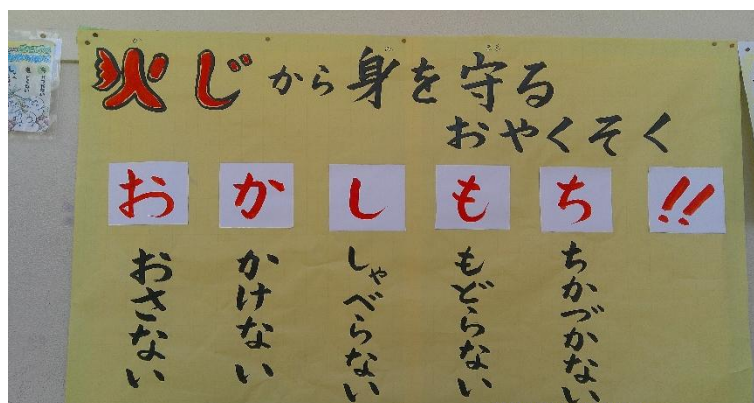 火じから身を守る
おやくそく
おかしもち!!
おさない
かけない
しゃべらない
もどらない
ちかづかない